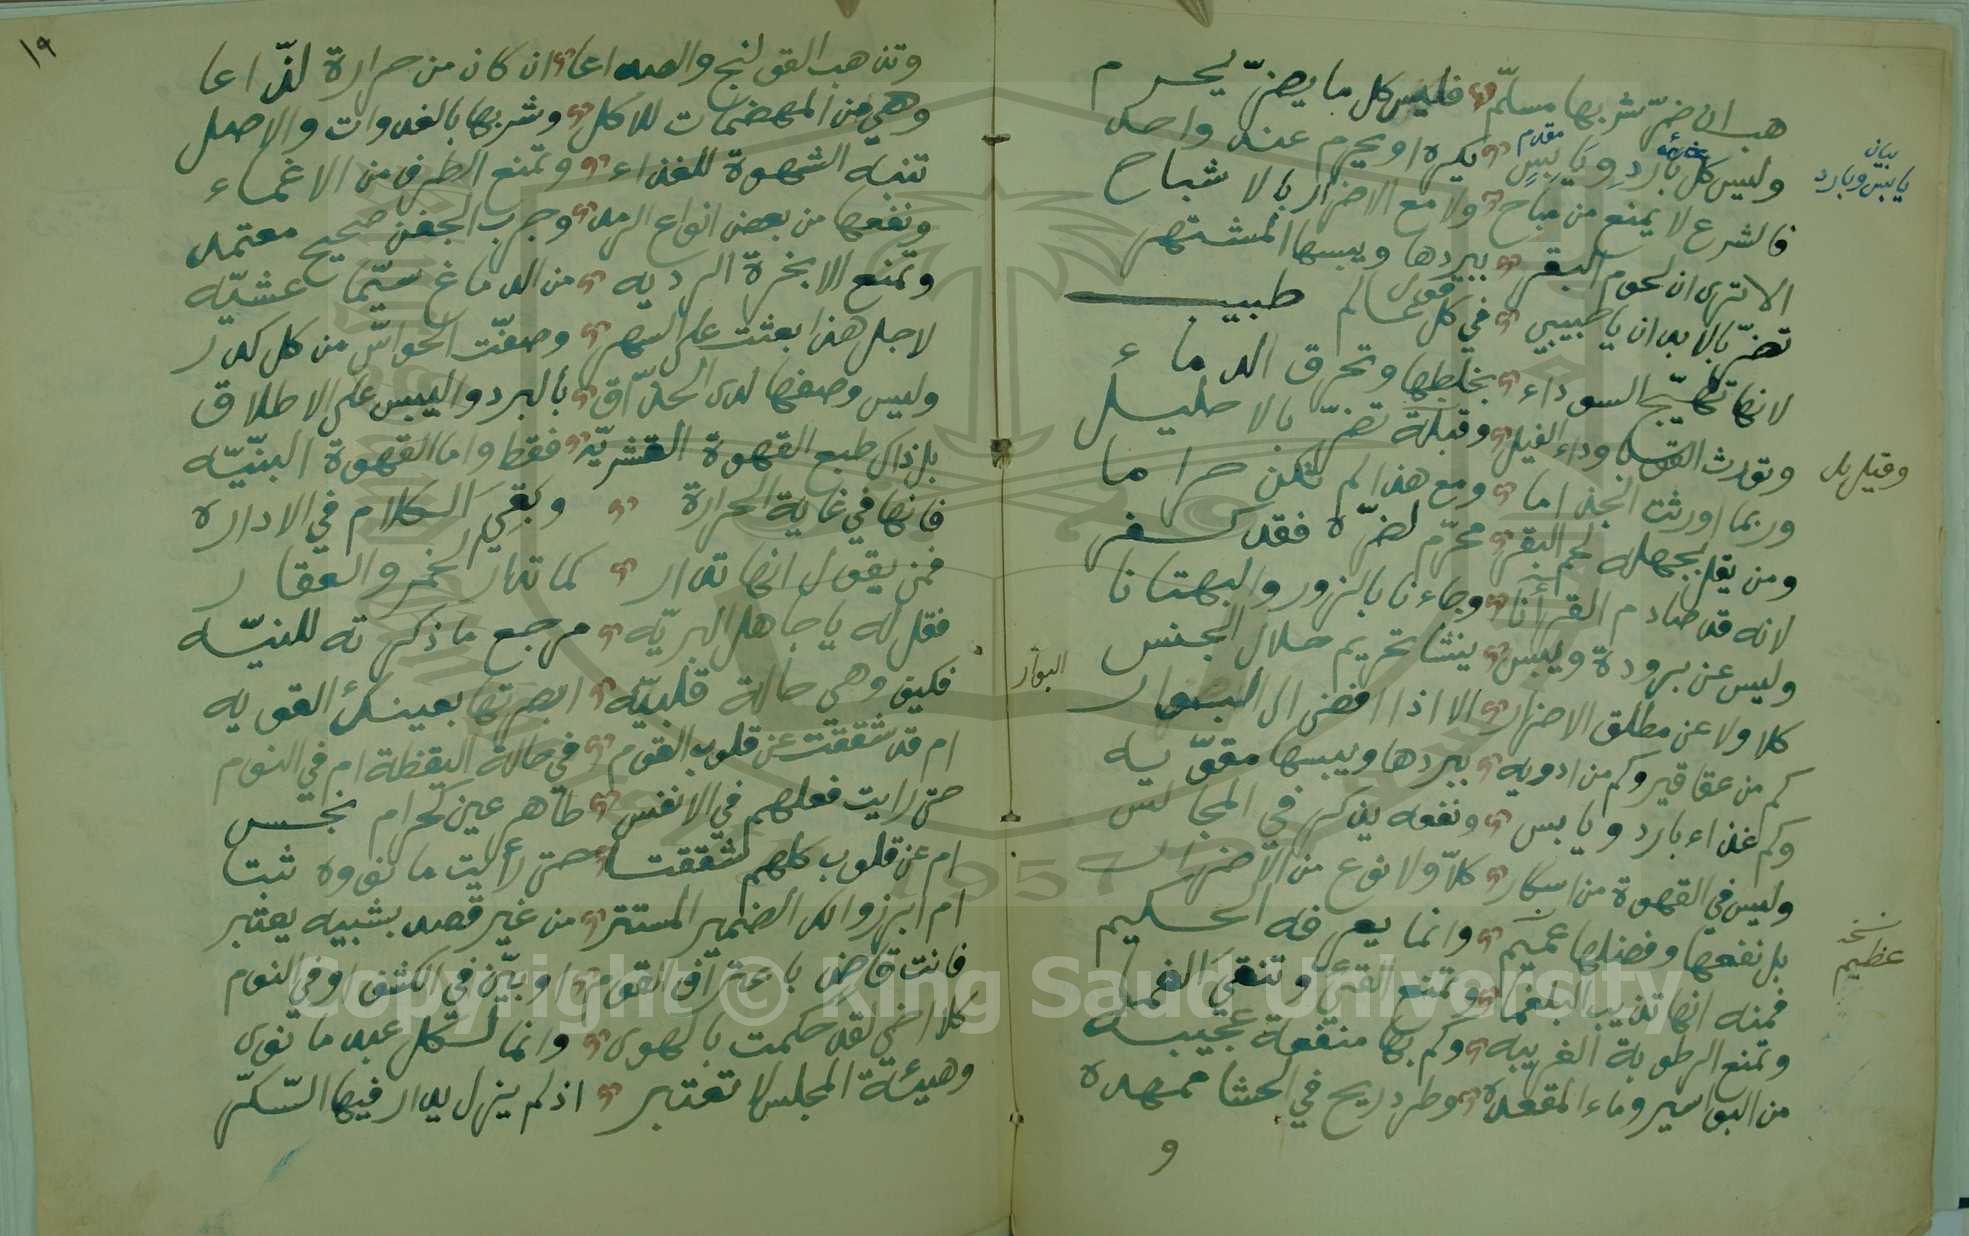 هب ان ضر شربها مسلم فليس كل ما يضر يحرم
وليس كل بارد ويابس يكره او يحرم عند واحد
مقدم
بيان
يابس وبارد
فالشرع لا يمنع من مباح ولا مع الاضرار بالاشباح
الا ترى ان لحوم البقر ببردها ويبسها المشتهر
تضر بالابدان يا طبيبي في قول كل عالم طبيب
لانها تهيج السوداء بخلطها وتحرق الدماء
وتورث القمل وداء الفيل وقيلة تضر بالاحليل
وقيل بل
وربما اورثت الجذاما ومع هذا لم تكن حراما
ومن يقل بجهله لحم البقر محرم لضره فقد كفر
لانه قد صادم القرأنا وجاءنا بالزور والبهتانا
وليس عن برودة ويبس ينشا تحريم حلال الجنس
كلا ولا عن مطلق الاضرار الا اذا افضى الى البوار
البوار
كم من عقاقير وكم من ادويه ببردها ويبسها مقويه
وكم غذاء بارد ويابس ونفعه يذكر في المجالس
وليس في القهوة من اسكار كلا ولا نوع من الاضرار
بل نفعها وفضلها عميم وانما يعرفه الحكيم
نسخة
عظيم
فمنه انها تذيب البلغما وتمنع القئ وتنقي الفما
وتمنع الرطوبة الغريبه وكم بها منفعة عجيبه
من البواسير وماء المقعده وطرد ريح في الحشا ممهده
و
١٩
وتذهب القولنج والصداعا ان كان من حرارة لذاعا
وهي من المهضمات للاكل وشربها بالغدوات والاصل
تنبه الشهوة للغذاء وتمنع الطرف من الاغماء
ونفعها من بعض انواع الرمد وجرب الجفن صحيح معتمد
وتمنع الابخرة الرديه من الدماغ سيما عشيه
لاجل هذا بعثت على السهر وصفت الحواس من كل كدر
وليس وصفها لدى الحذاق بالبرد واليبس على الاطلاق
بل ذاك طبع القهوة القشريه فقط واما القهوة البنيه
فانها في غاية الحرارة وبقي الكلام في الاداره
فمن يقول انها تدار كما تدار الخمر والعقار
فقل له يا جاهل البريه مرجع ما ذكرته للنيه
فكيف وهي حالة قلبيه ابصرتها بعينك القويه
ام قد شققت عن قلوب القوم في حالة اليقظة ام في النوم
حتى رايت فعلهم في الانفس طاهر عين كحرام نجس
ام عن قلوب كلهم شققتا حتى رأيت ما نووه ثبتا
ام ابرزوا لك الضمير المستتر من غير قصد بشبيه يعتبر
فانت قاض باعتراف القوم او بين في الكشف او في النوم
كلا اخي لقد حكمت بالهوى وانما لكل عبد ما نوى
وهيئة المجلس لا تعتبر اذ لم ينزل يدار فيها السكر
Copyright © King Saud University
1957